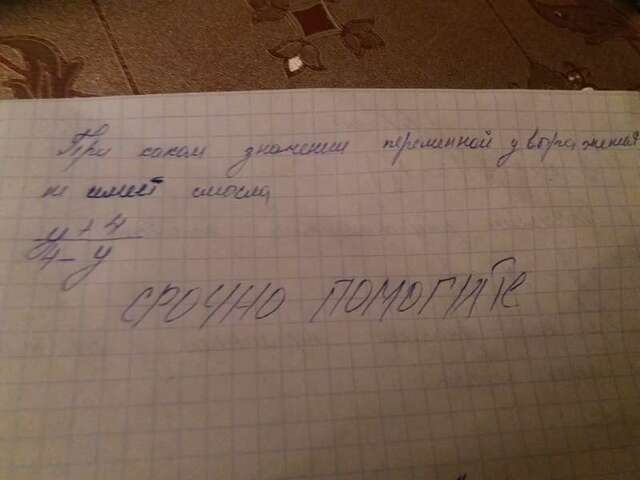 При каком значении переменной у выражения
не имеет смысла
y + 4
4 - y
СРОЧНО ПОМОГИТЕ